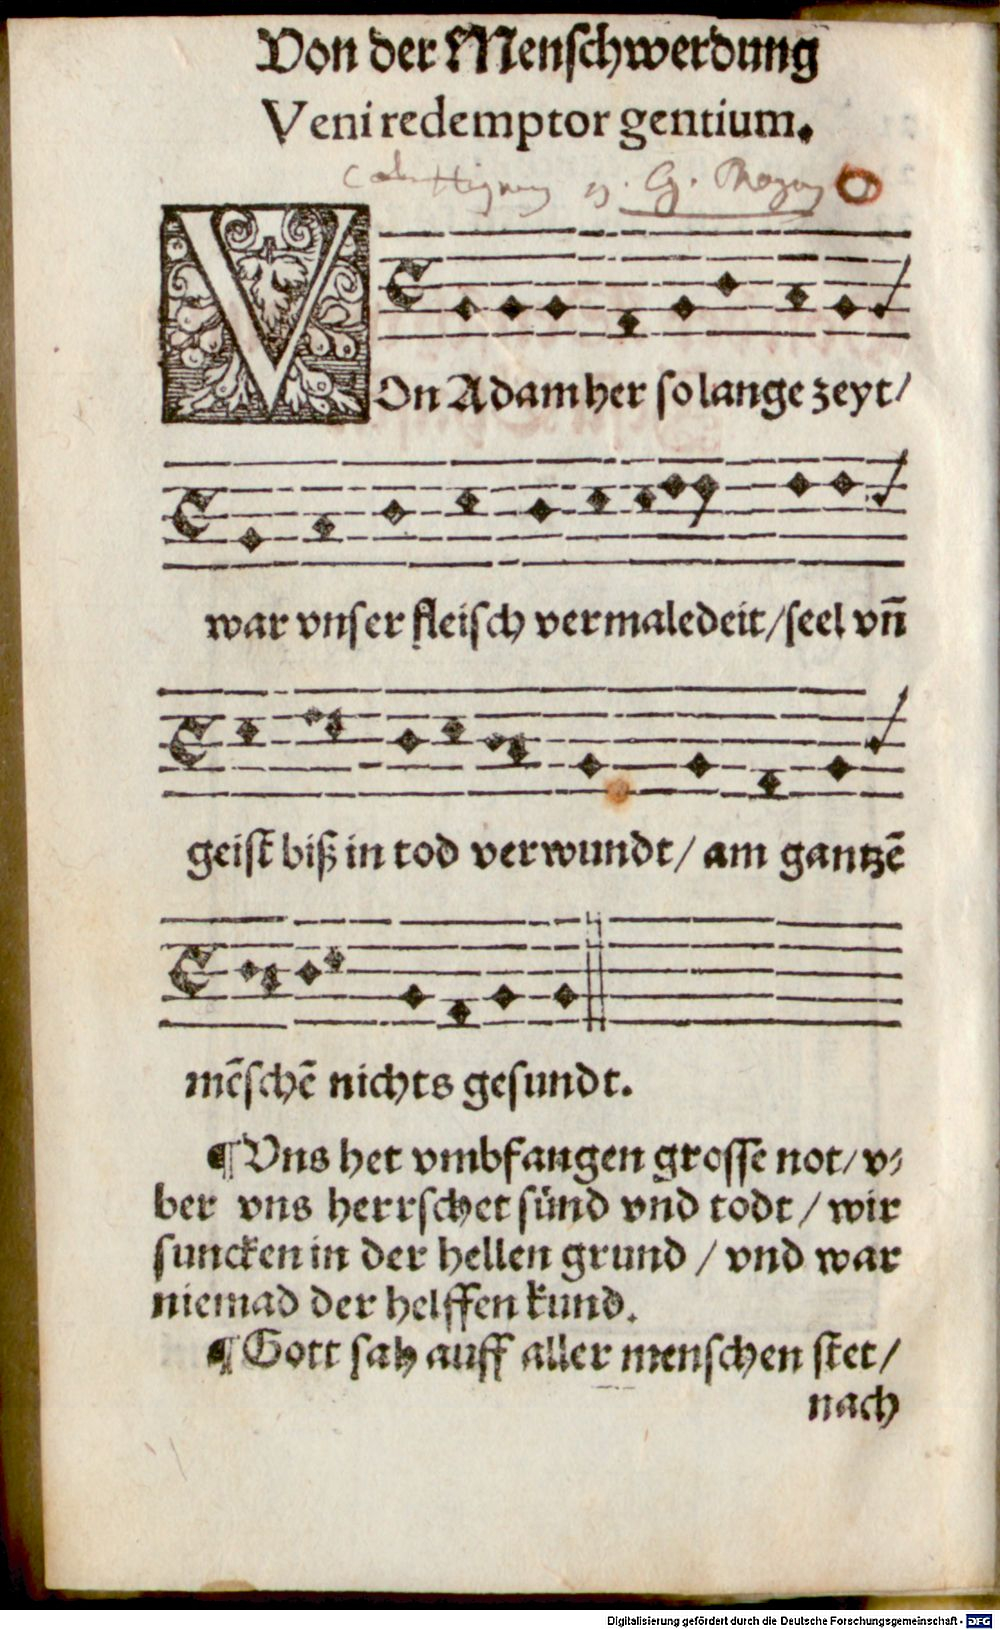 Von der Menschwerdung
Veni redemptor gentium.
VOn Adam her so lange zeyt/
war vnser fleisch vermaledeit/seel vn̄
geist biß in tod verwundt/ am gantzē
mēschē nichts gesundt.
¶ Vns het vmbfangen grosse not/ v⸗
ber vns herrschet sünd vnd todt / wir
suncken in der hellen grund / vnd war
niemad der helffen kund.
¶ Gott sah auff aller menschen stet/
nach
Digitalisierung gefördert durch die Deutsche Forschungsgemeinschaft - DFG